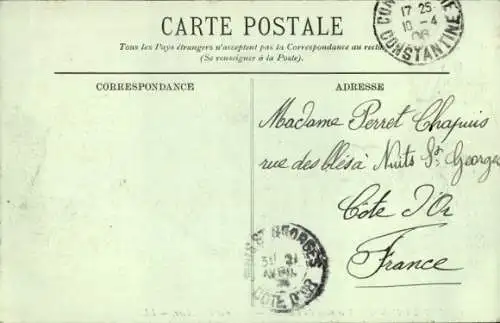 CARTE POSTALE
Tous les Pays étrangers n'acceptent pas la Correspondance au recto
(Se renseigner à la Poste).
CONSTANTINE
17 25
10 - 4
06
CORRESPONDANCE
ADRESSE
Madame Perret Chapuis
rue des blés à Nuits St Georges
Côte d'Or
France
ST GEORGES
AVRIL
COTE D'OR